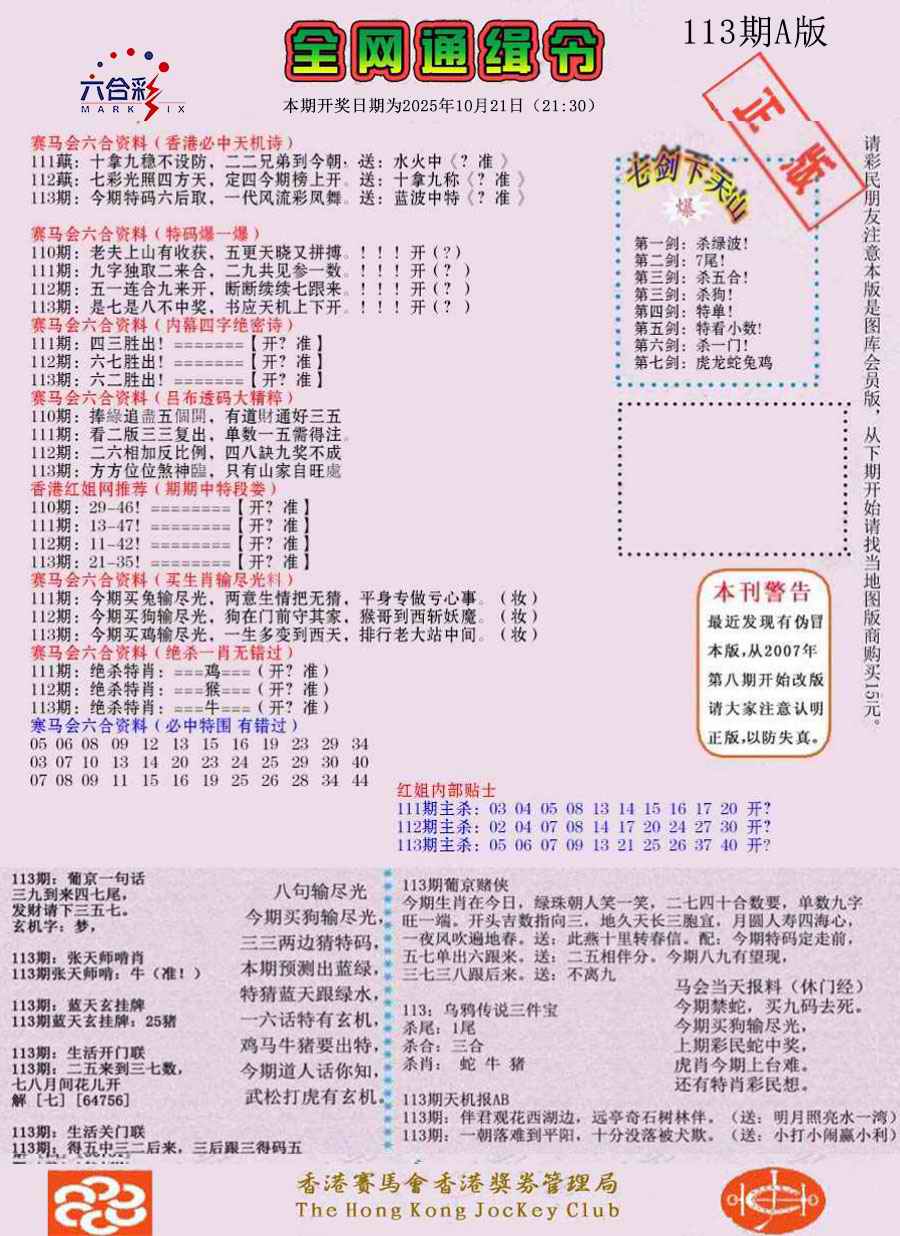 全网通缉令
113期A版
六合彩
MARK SIX
本期开奖日期为2025年10月21日（21:30）
正版
赛马会六合资料（香港必中天机诗）
111蘸：十拿九稳不设防，二二兄弟到今朝，送：水火中《？准 》
112蘸：七彩光照四方天，定四今期榜上开。送：十拿九称《？准 》
113期：今期特码六后取，一代风流彩凤舞。送：蓝波中特《？准 》
赛马会六合资料（特码爆一爆）
110期：老夫上山有收获，五更天晓又拼搏。！！！开（?）
111期：九字独取二来合，二九共见参一数。！！！开（? ）
112期：五一连合九来开，断断续续七跟来。！！！开（? ）
113期：是七是八不中奖，书应天机上下开。！！！开（? ）
赛马会六合资料（内幕四字绝密诗）
111期：四三胜出！=======【开？准】
112期：六七胜出！=======【开？准】
113期：六二胜出！=======【开？准】
赛马会六合资料（吕布透码大精粹）
110期：捧綠追盡五個開，有道財通好三五
111期：看二版三三复出，单数一五需得注。
112期：二六相加反比例，四八缺九奖不成
113期：方方位位煞神臨，只有山家自旺處
香港红姐网推荐（期期中特段娄）
110期：29-46！========【开？准】
111期：13-47！========【开？准】
112期：11-42！========【开？准】
113期：21-35！========【开？准】
赛马会六合资料（买生肖输尽光料）
111期：今期买兔输尽光，两意生情把无猜，平身专做亏心事。（妆）
112期：今期买狗输尽光，狗在门前守其家，猴哥到西斩妖魔。（妆）
113期：今期买鸡输尽光，一生多变到西天，排行老大站中间。（妆）
赛马会六合资料（绝杀一肖无错过）
111期：绝杀特肖：===鸡===（开？准）
112期：绝杀特肖：===猴===（开？准）
113期：绝杀特肖：===牛===（开？准）
寒马会六合资料（必中特围 有错过）
05 06 08 09 12 13 15 16 19 23 29 34
03 07 10 13 14 20 23 24 25 29 30 40
07 08 09 11 15 16 19 25 26 28 34 44
七剑下天山
爆
第一剑：杀绿波！
第二剑：7尾！
第三剑：杀五合！
第三剑：杀狗！
第四剑：特单！
第五剑：特看小数！
第六剑：杀一门！
第七剑：虎龙蛇兔鸡
请彩民朋友注意本版是图库会员版，从下期开始请找当地图版商购买15元。
本刊警告
最近发现有伪冒
本版，从2007年
第八期开始改版
请大家注意认明
正版，以防失真。
红姐内部贴士
111期主杀：03 04 05 08 13 14 15 16 17 20 开?
112期主杀：02 04 07 08 14 17 20 24 27 30 开?
113期主杀：05 06 07 09 13 21 25 26 37 40 开?
113期：葡京一句话
三九到来四七尾，
发财请下三五七。
玄机字：梦，
113期：张天师啃肖
113期张天师啃：牛（准！）
113期：蓝天玄挂牌
113期蓝天玄挂牌：25猪
113期：生活开门联
113期：二五来到三七数，
七八月间花儿开
解［七］［64756］
113期：生活关门联
113期：得五中三二后来，三后跟三得码五
八句输尽光
今期买狗输尽光，
三三两边猜特码，
本期预测出蓝绿，
特猜蓝天跟绿水，
一六话特有玄机，
鸡马牛猪要出特，
今期道人话你知，
武松打虎有玄机。
113期葡京赌侠
今期生肖在今日，绿珠朝人笑一笑，二七四十合数要，单数九字
旺一端。开头吉数指向三，地久天长三胞宜，月圆人寿四海心，
一夜风吹遍地春。送：此燕十里转春信。配：今期特码定走前，
五七单出六跟来。送：二五相伴分。今期八九有望现，
三七三八跟后来。送：不离九
113：乌鸦传说三件宝
杀尾：1尾
杀合：三合
杀肖： 蛇 牛 猪
马会当天报料（休门经）
今期禁蛇，买九码去死。
今期买狗输尽光，
上期彩民蛇中奖，
虎肖今期上台难。
还有特肖彩民想。
113期天机报AB
113期：伴君观花西湖边，远亭奇石树林伴。（送：明月照亮水一湾）
113期：一朝落难到平阳，十分没落被犬欺。（送：小打小闹赢小利）
香港賽馬會香港獎券管理局
The Hong Kong JocKey Club